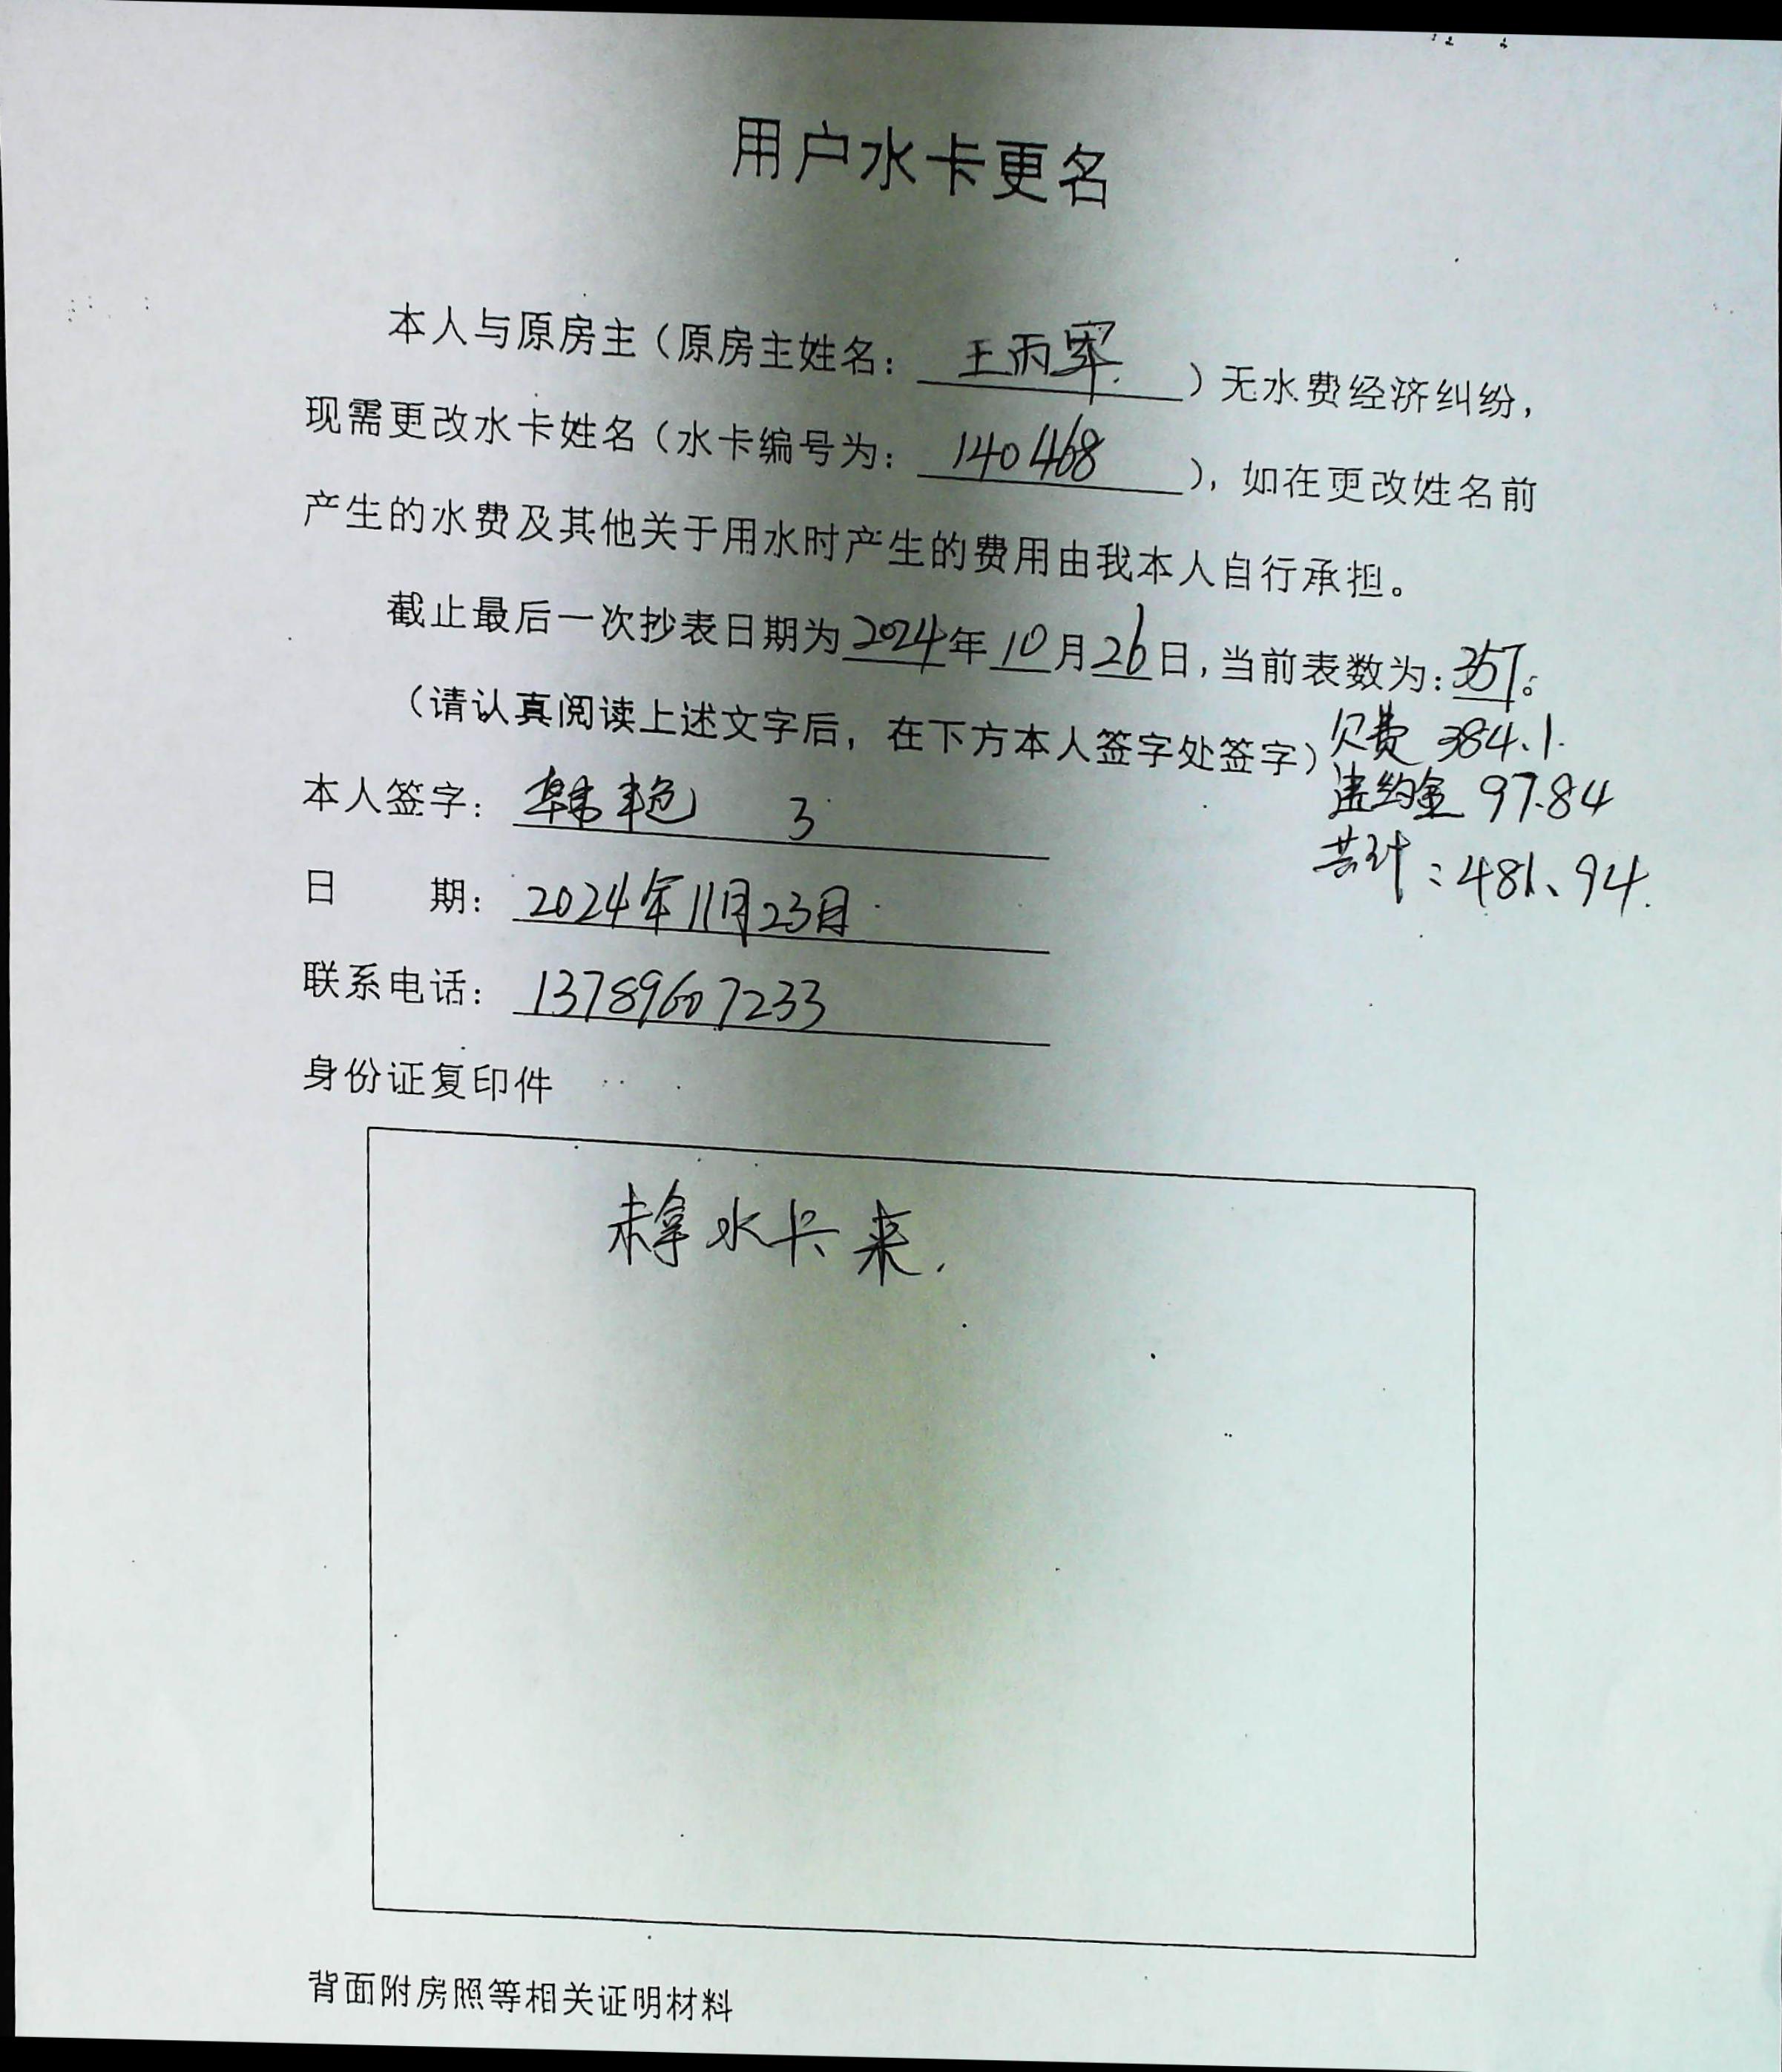 用户水卡更名
本人与原房主（原房主姓名：王雨军）无水费经济纠纷，
现需更改水卡姓名（水卡编号为：140468），如在更改姓名前
产生的水费及其他关于用水时产生的费用由我本人自行承担。
截止最后一次抄表日期为2024年10月26日，当前表数为：357。
（请认真阅读上述文字后，在下方本人签字处签字）
欠费 384.1.
违约金 97.84
共计：481.94.
本人签字：韩艳 3
日 期：2024年11月23日
联系电话：13789607233
身份证复印件
未拿水卡来.
背面附房照等相关证明材料